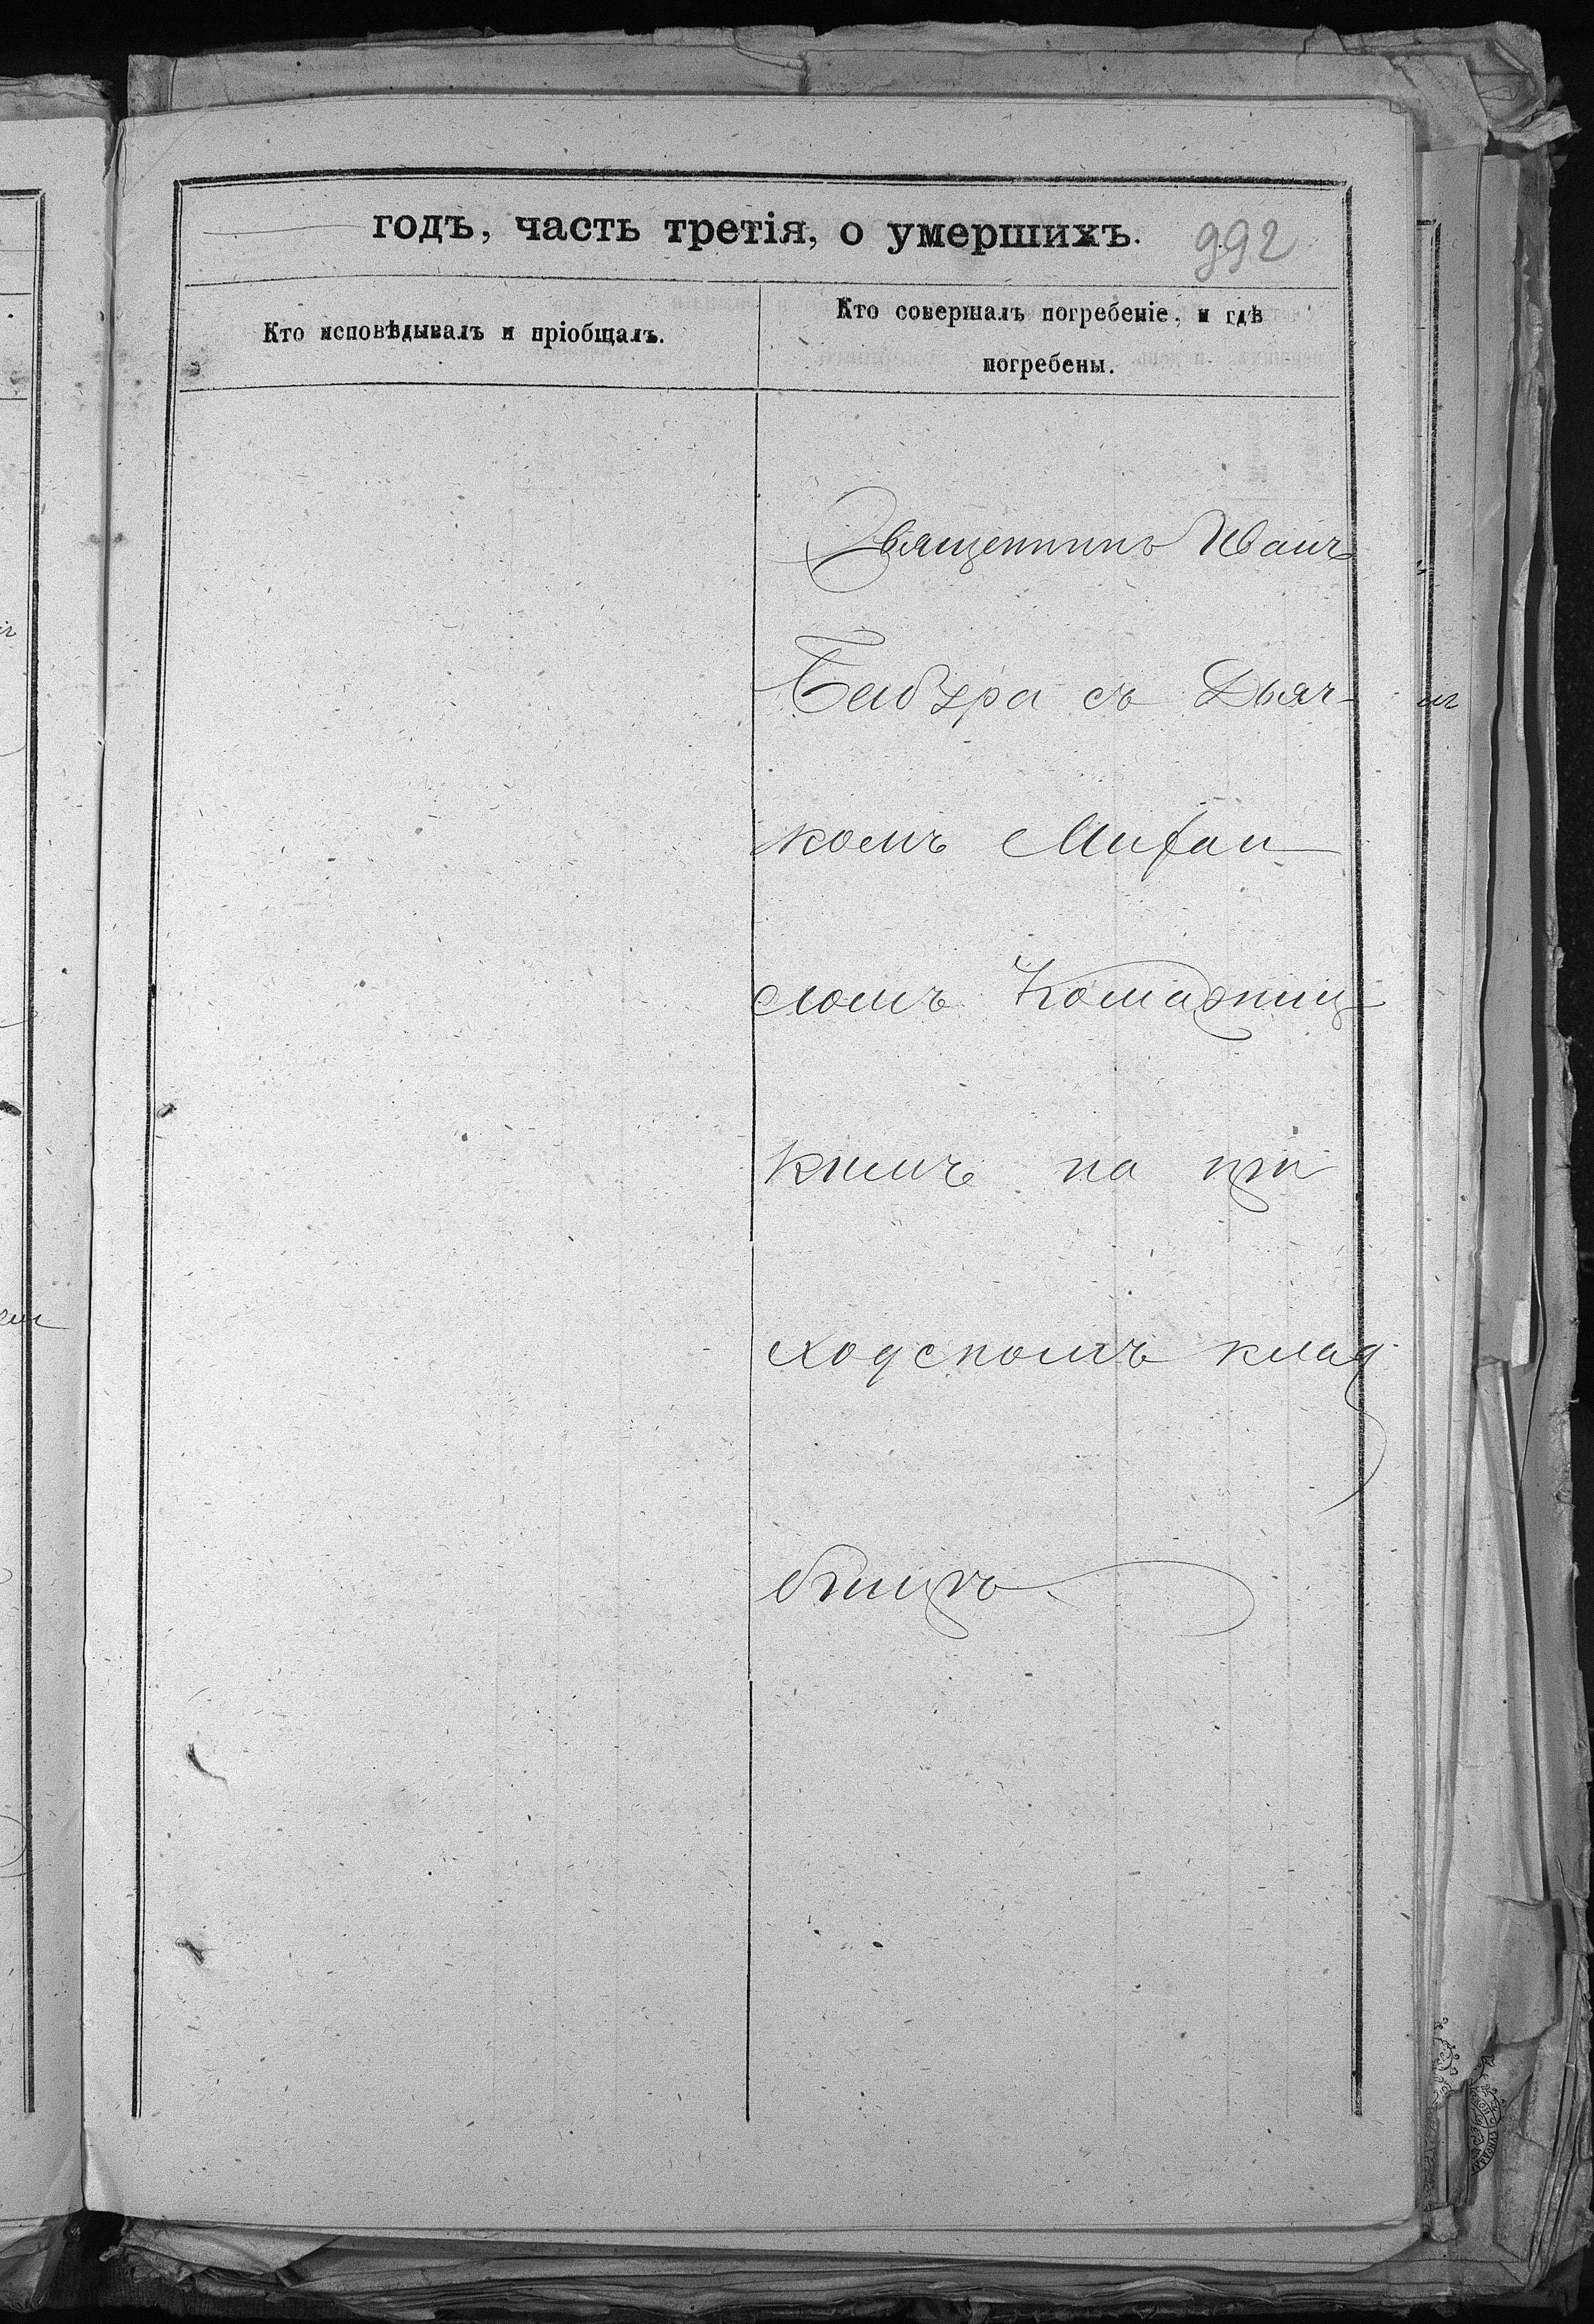 годъ, часть третія, о умершихъ.
992
Кто исповѣдывалъ и пріобщалъ.
Кто совершалъ погребеніе, и гдѣ
погребены.
Священникъ Иванъ
съ Дьяч-
комъ Михаи
ломъ Комарниц
кимъ на при
ходскомъ клад
бищѣ